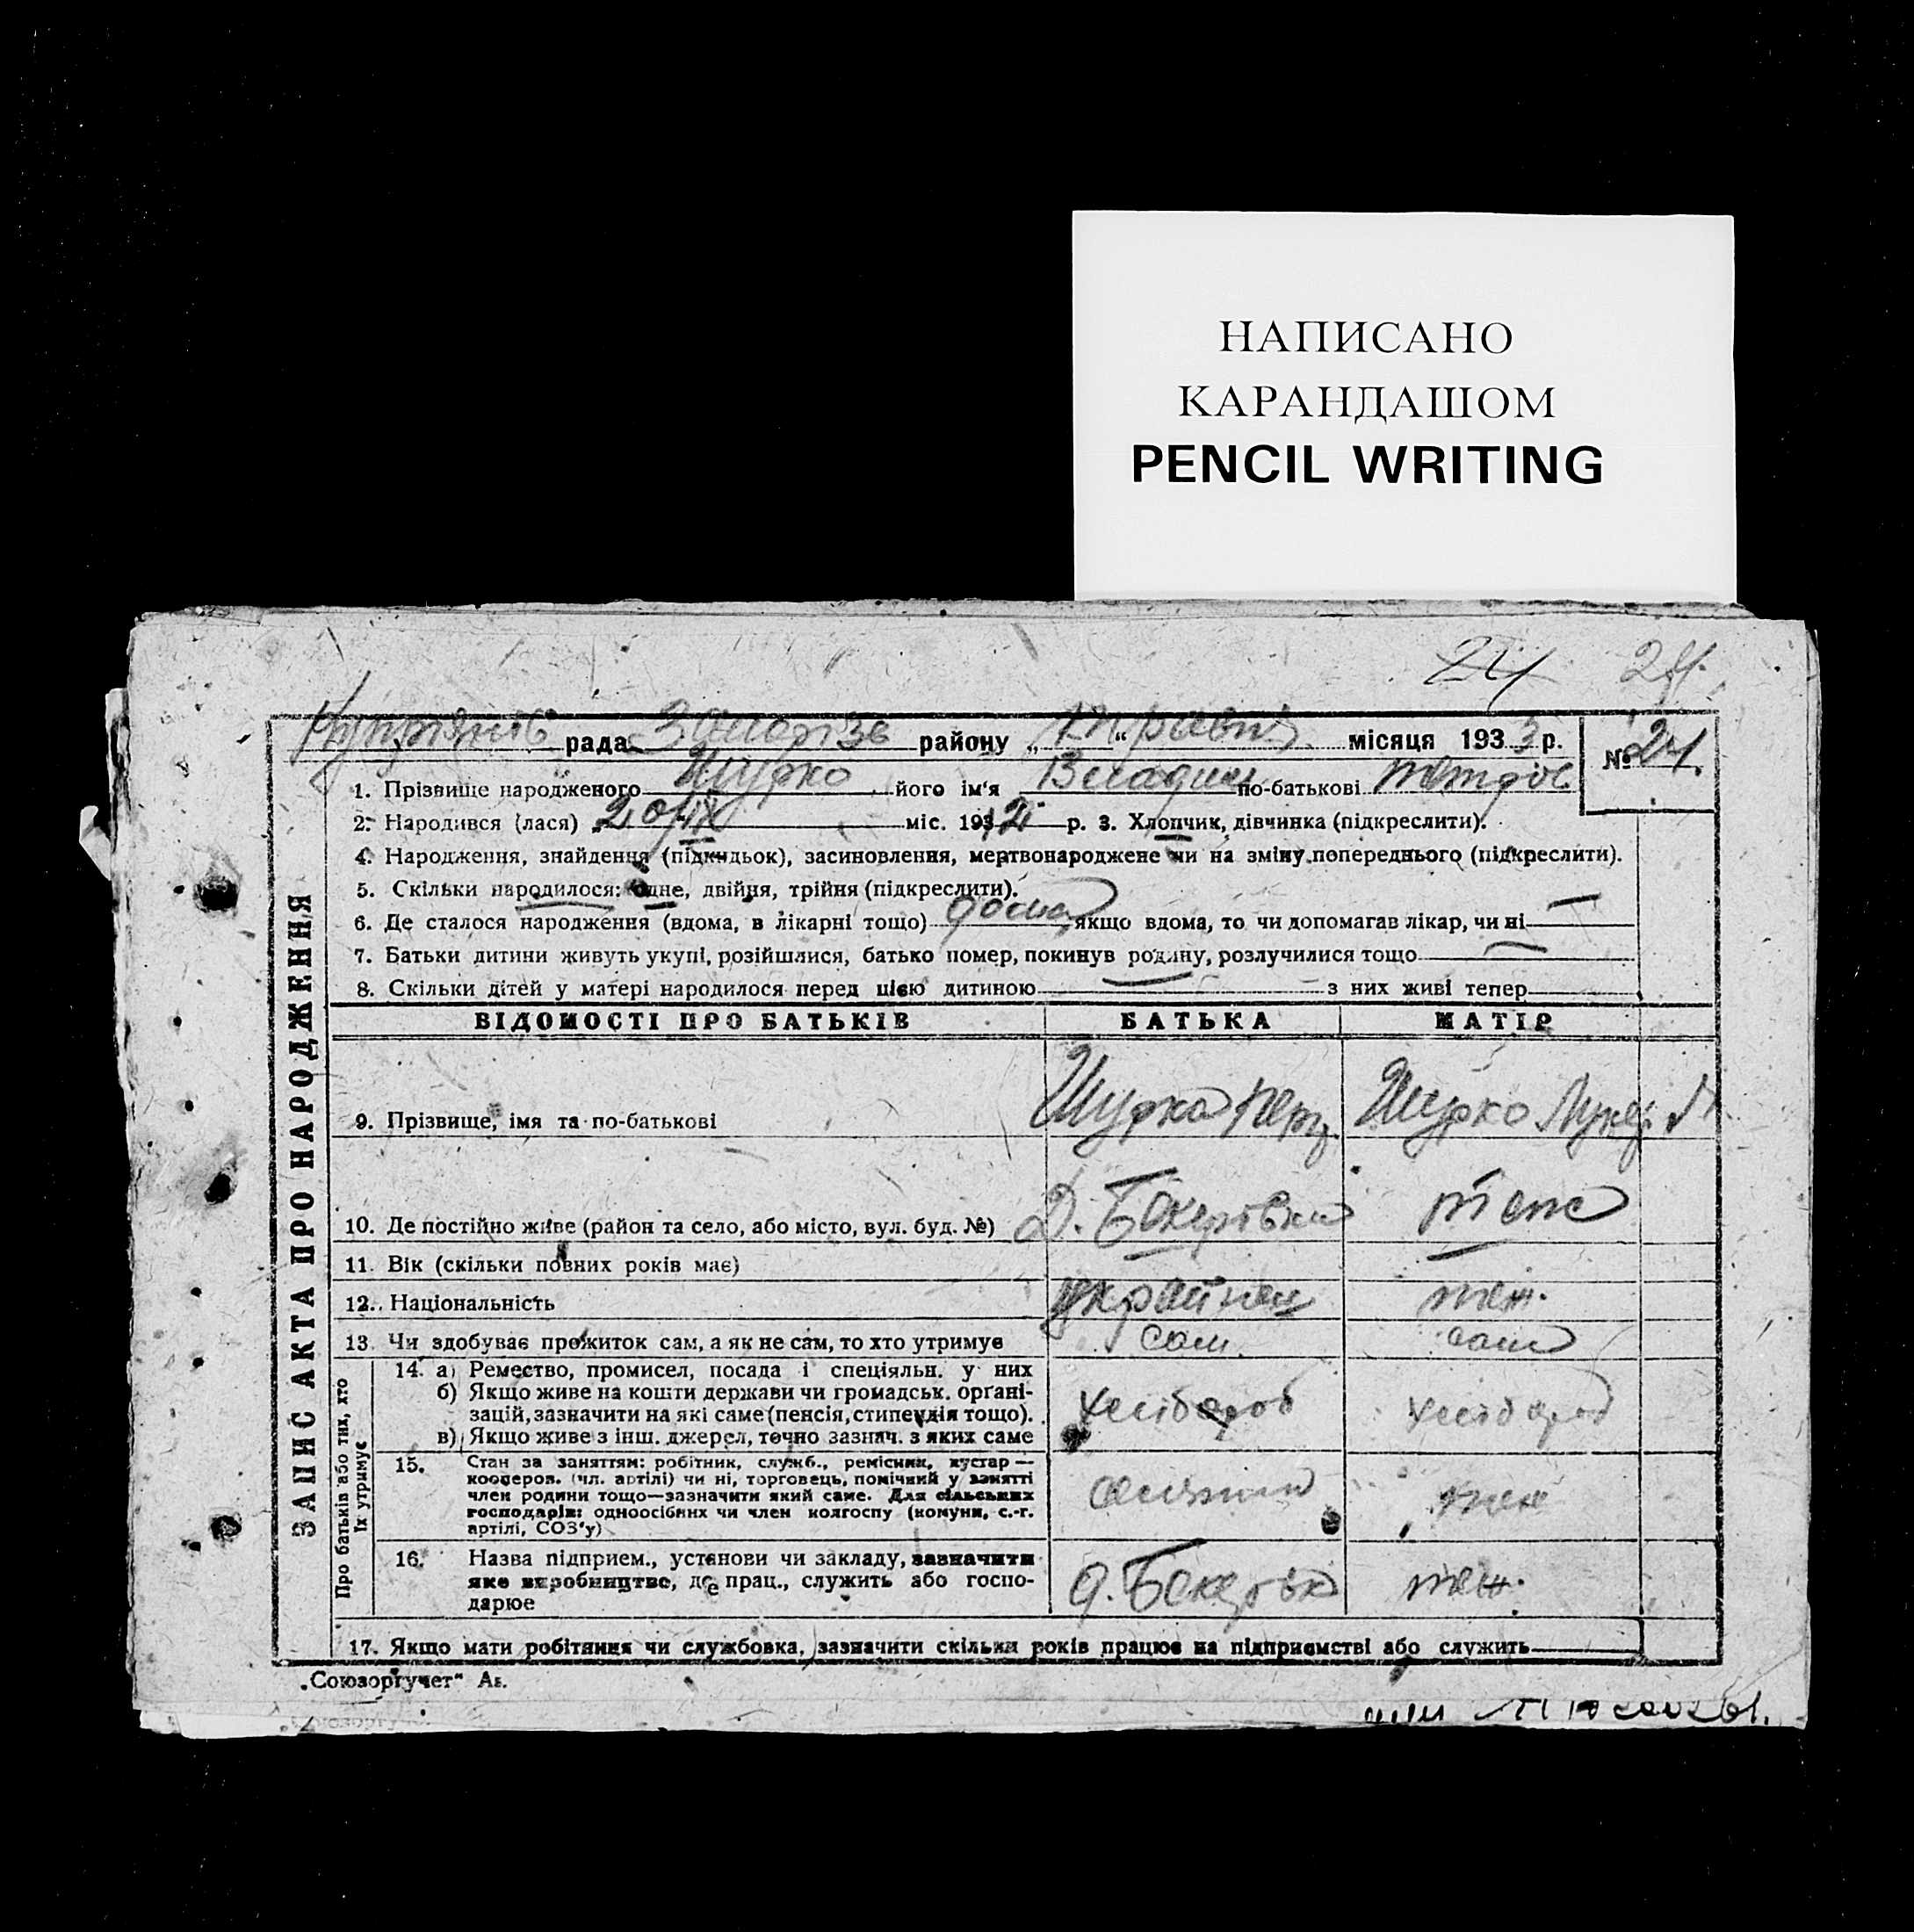 НАПИСАНО
КАРАНДАШОМ
PENCIL WRITING
24 24.
рада району „ “ місяця 1933 р.
№ 24.
1. Прізвище народженого Шурко його ім'я по-батькові
2. Народився (лася) міс. 1932 р. 3. Хлопчик, дівчинка (підкреслити).
4. Народження, знайдення (підкидьок), засиновлення, мертвонароджене чи на зміну попереднього (підкреслити).
5. Скільки народилося: одне, двійня, трійня (підкреслити).
6. Де сталося народження (вдома, в лікарні тощо) дома якщо вдома, то чи допомагав лікар, чи ні —
7. Батьки дитини живуть укупі, розійшлися, батько помер, покинув родину, розлучилися тощо —
8. Скільки дітей у матері народилося перед цією дитиною — з них живі тепер
ЗАПИС АКТА ПРО НАРОДЖЕННЯ
ВІДОМОСТІ ПРО БАТЬКІВ БАТЬКА МАТІР
9. Прізвище, імя та по-батькові Шурко Петр. Шурко
10. Де постійно живе (район та село, або місто, вул. буд. №) теж
11. Вік (скільки повних років має) — —
12. Національність українец теж.
13. Чи здобуває прожиток сам, а як не сам, то хто утримує сам. сама
Про батьків або тих, хто їх утримує
14. а) Ремество, промисел, посада і спеціяльн. у них
б) Якщо живе на кошти держави чи громадськ. орґані-
зацій, зазначити на які саме (пенсія, стипендія тощо).
в) Якщо живе з інш. джерел, точно зазнач. з яких саме
хлібороб хлібороб
15. Стан за заняттям: робітник, служб., ремісник, кустар —
кооперов. (чл. артілі) чи ні, торговець, помічний у занятті
член родини тощо—зазначити який саме. Для сільських
господарів: одноосібних чи член колгоспу (комуни, с.-г.
артілі, СОЗ'у)
теж
16. Назва підприєм., установи чи закладу, зазначити
яке виробництво, де прац., служить або госпо-
дарює
теж.
17. Якщо мати робітниця чи службовка, зазначити скільки років працює на підприємстві або служить
„Союзоргучет“ Аз.